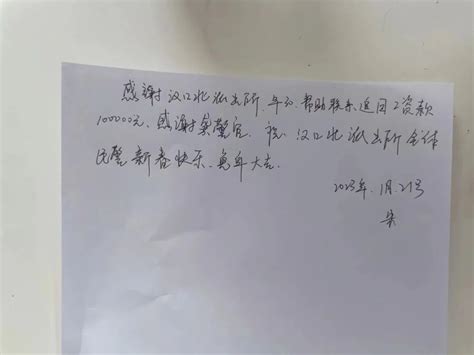 感谢汉口北派出所.年初.帮助联系追回工资款
100000元、感谢柴警官. 祝. 汉口北派出所全体
民警新春快乐.兔年大吉.
2023年.1月.21号
朱